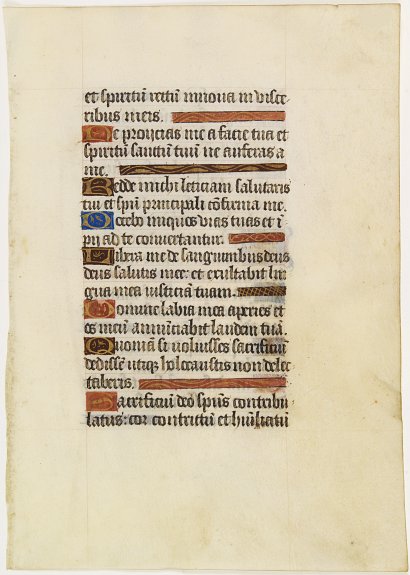 et spiritū rectū innova in visce-
ribus meis.
Ne proiicias me a facie tua et
spiritū sanctū tuū ne auferas a
me.
Redde michi leticiam salutaris
tui et spū principali cōfirma me.
Docebo iniquos vias tuas et ī
pii ad te convertantur.
Libera me de sanguinibus deus
deus salutis mee: et exultabit lin
gua mea iusticiā tuam.
Domine labia mea aperies et
os meū annūciabit laudem tuā.
Quoniā si voluisses sacrificiū
dedissē utiqz holocaustis non delec
taberis.
Sacrificiū deo spūs contribu
latus: cor contritū et humiliatū